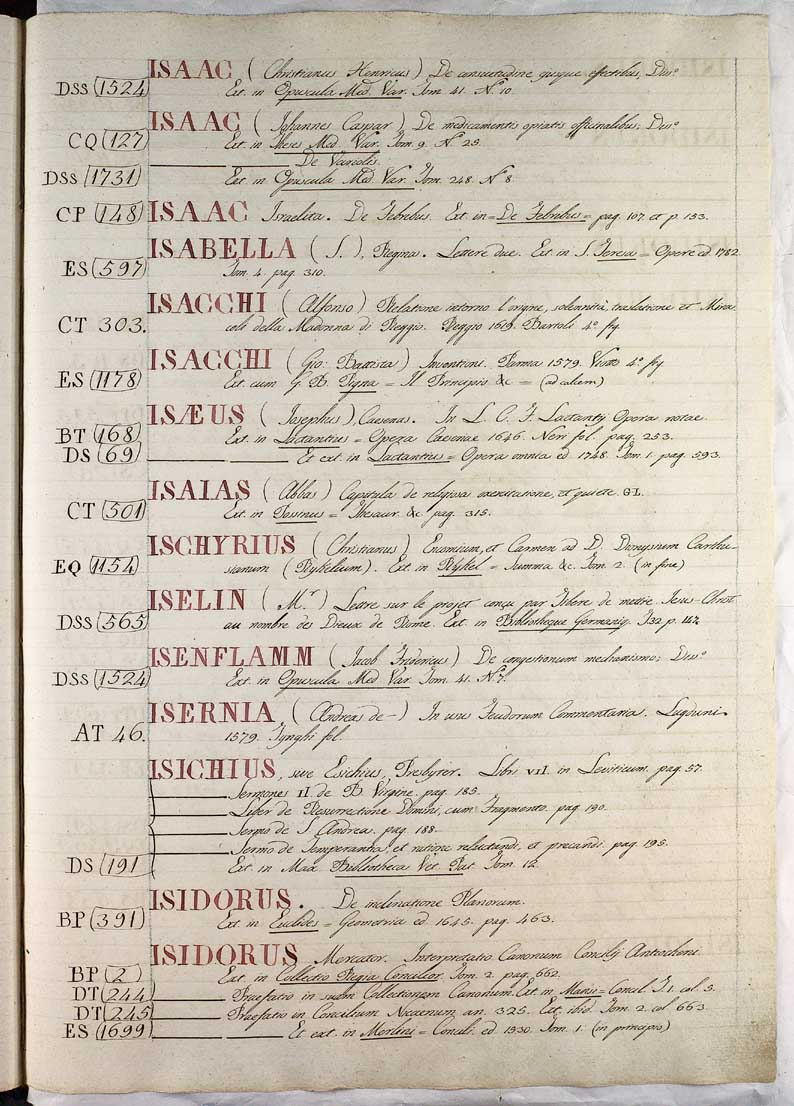 ISAAC (Christianus Henricus) De consuetudine ejusque effectibus, Diss.º
DSS (1524) Ext. in Opuscula Med. Var. Tom. 41. Nº 10.
ISAAC (Johannes Caspar) De medicamentis opiatis officinalibus; Diss.º
CQ (127) Ext. in Theses Med. Var. Tom. 9. Nº 25.
De Variolis.
DSS (1731) Ext. in Opuscula Med. Var. Tom. 248. Nº 8.
CP (148) ISAAC Israelita. De Febribus. Ext. in = De Febribus = pag. 107. et p. 153.
ISABELLA (S.), Regina. Lettere due. Ext. in S. Teresa = Opere ed. 1782.
ES (597) Tom. 4. pag. 310.
ISACCHI (Alfonso) Relatione intorno l'origine, solennità, traslatione et Mira-
CT 303. coli della Madonna di Reggio. Reggio 1619. Bartoli 4º fig.
ISACCHI (Gio: Battista) Inventioni. Parma 1579. Viotti 4º fig.
ES (1178) Ext. cum G. B. Pigna = Il Principis &c = (ad calcem)
ISÆUS (Josephus), Caesenas. In L. C. F. Lactantij Opera notae.
BT (168) Ext. in Lactantius = Opera Caesenae 1646. Neri fol. pag. 253.
DS (69) Et ext. in Lactantius = Opera omnia ed. 1748. Tom. 1. pag. 593.
ISAIAS (Abbas) Capitula de religiosa exercitatione, et quiete. GL.
CT (301) Ext. in Possinus = Thesaur. &c. pag. 315.
ISCHYRIUS (Christianus) Encomium, et Carmen ad D. Dionysium Carthu-
EQ (1154) sianum (Rykelium). Ext. in Rykel = Summa &c. Tom. 2. (in fine)
ISELIN (M.r) Lettre sur le projet conçu par Tibere de mettre Jesus-Christ
DSS (565) au nombre des Dieux de Rome. Ext. in Bibliotheque Germaniq. T.32 p. 147.
ISENFLAMM (Jacob Fridericus) De congestionum mechanismo; Diss.º
DSS (1524) Ext. in Opuscula Med. Var. Tom. 41. Nº 7.
ISERNIA (Andreas de -) In usus Feudorum Commentaria. Lugduni
AT 46. 1579. fol.
ISICHIUS, sive Esichius, Presbyter. Libri VII. in Leviticum. pag. 57.
Sermones II. de B. Virgine. pag. 185.
Liber de Resurrectione Domini, cum Fragmento. pag. 190.
Sermo de S. Andrea. pag. 188.
Sermo de Temperantia, et ratione reluctandi, et precandi. pag. 195.
DS (191) Ext. in Max. Bibliotheca Vet. Pat. Tom. 12.
ISIDORUS. De inclinatione Planorum.
BP (391) Ext. in Euclides = Geometria ed. 1645. pag. 463.
ISIDORUS Mercator. Interpretatio Canonum Concilij Antiocheni.
BP (2) Ext. in Collectio Regia Concilior. Tom. 2. pag. 662.
DT (244) Praefatio in suam Collectionem Canonum. Ext. in Mansi = Concil. T. 1. col. 5.
DT (245) Praefatio in Concilium Nicaenum an. 325. Ext. ibid. Tom. 2. col. 663.
ES (1699) Et ext. in Merlini = Concili. ed. 1530. Tom. 1. (in principio)